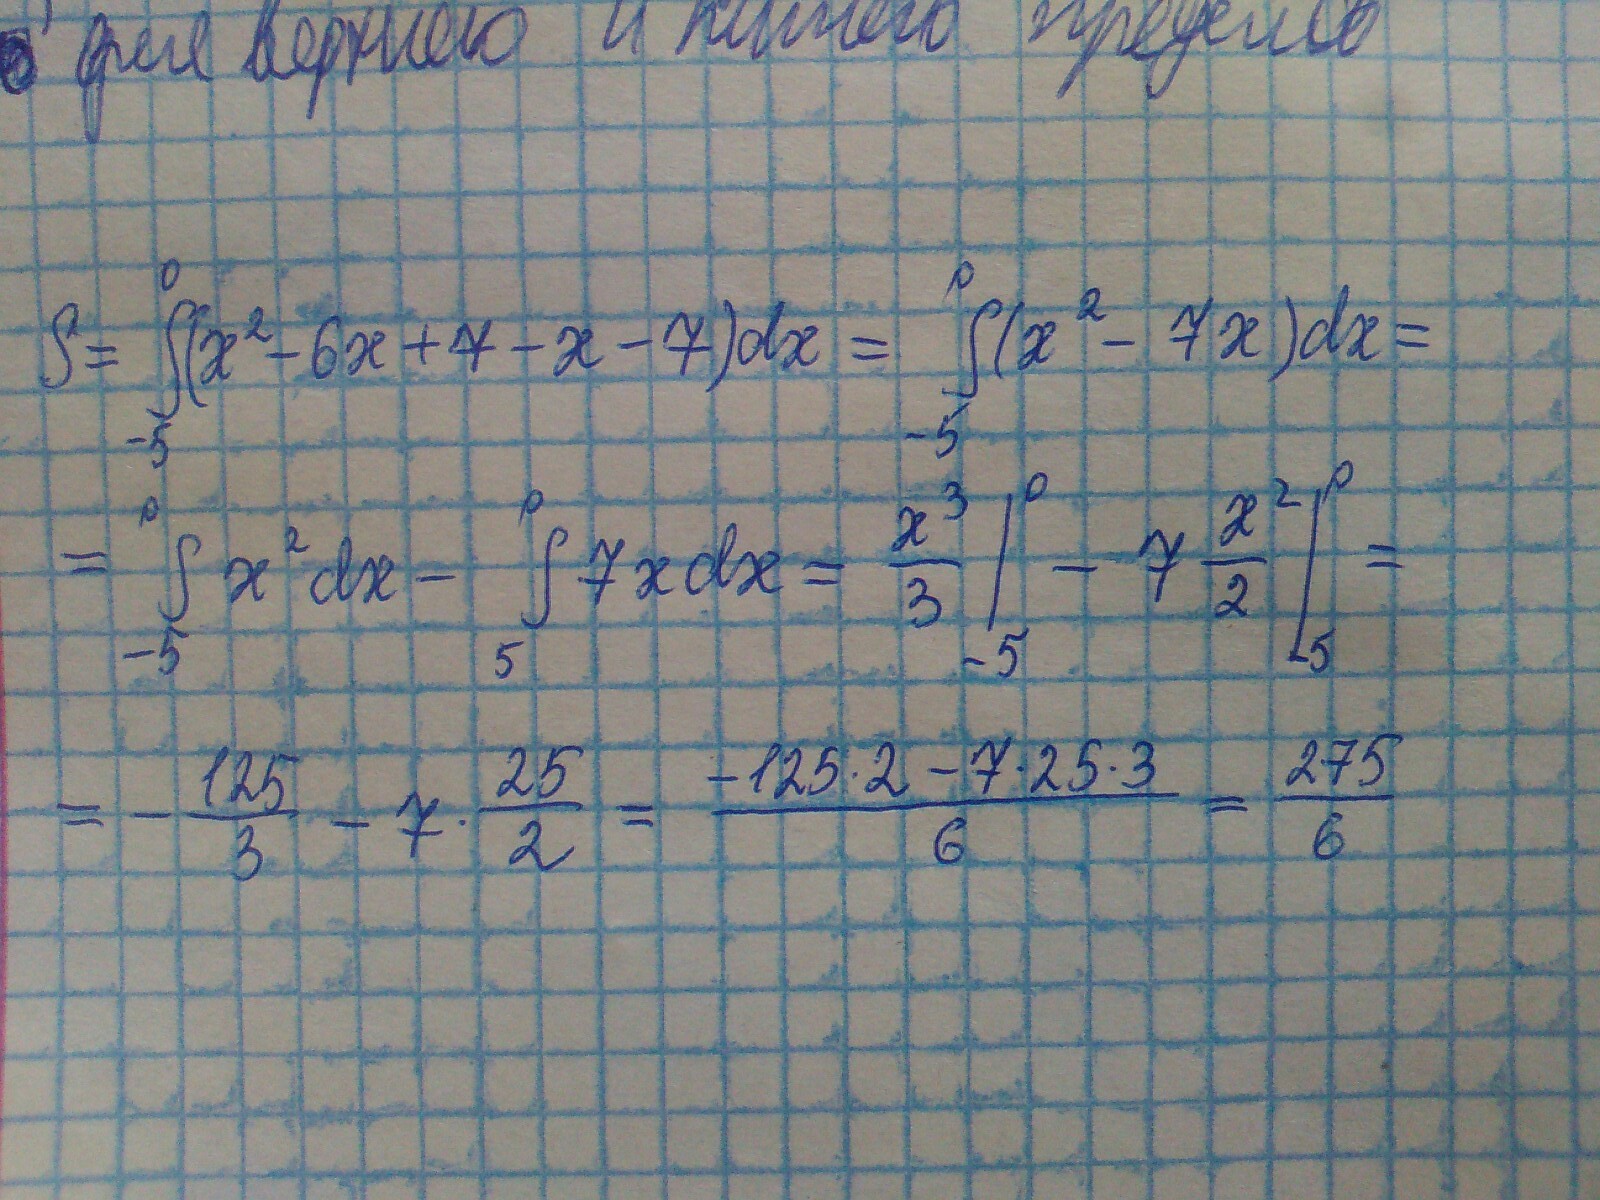 для верхнего и нижнего пределов
S = ∫₋₅⁰ (x² - 6x + 7 - x - 7)dx = ∫₋₅⁰ (x² - 7x)dx =
= ∫₋₅⁰ x² dx - ∫₅⁰ 7x dx = x³/3 |₋₅⁰ - 7 x²/2 |₋₅⁰ =
= - 125/3 - 7 · 25/2 = (-125·2 - 7·25·3)/6 = 275/6